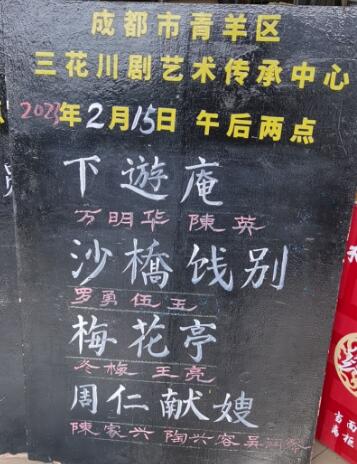 成都市青羊区
三花川剧艺术传承中心
2023年2月15日 午后两点
下遊庵
万明华 陳英
沙橋饯别
罗勇 伍玉
梅花亭
冬梅 王亮
周仁献嫂
陳家兴 陶兴容 吴